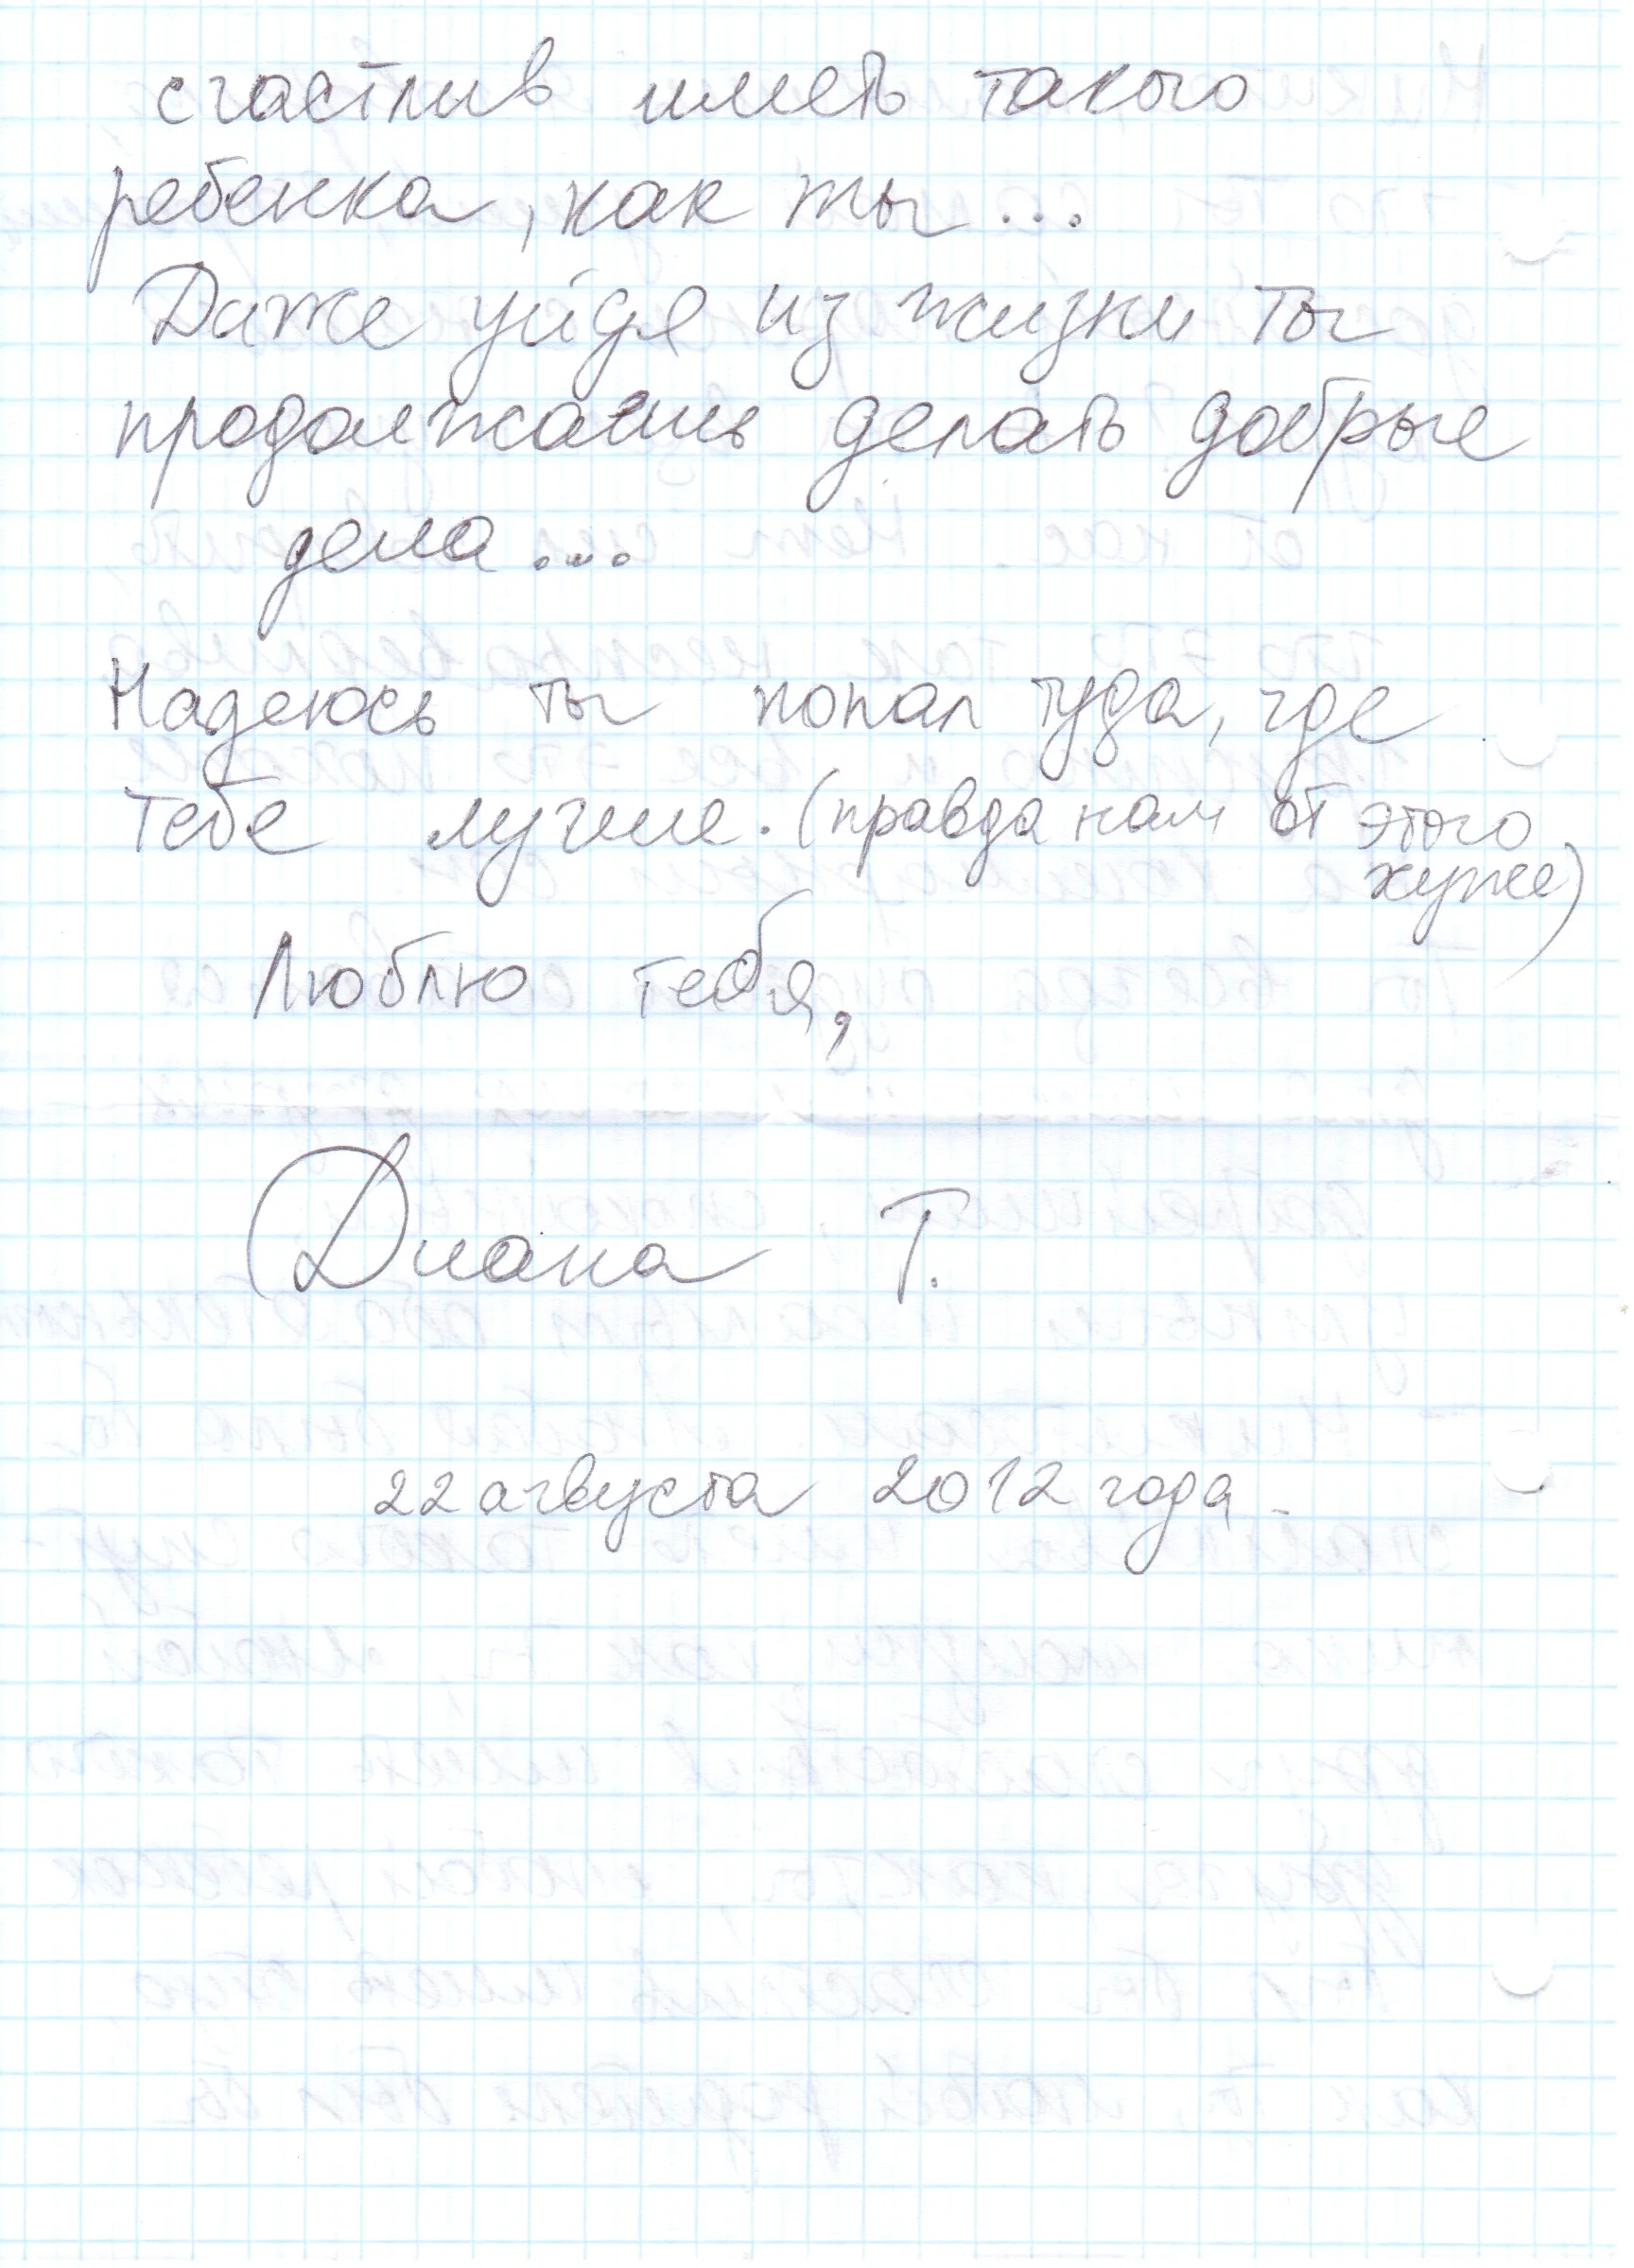 счастлив иметь такого
ребенка, как ты...
Даже уйдя из жизни ты
продолжаешь делать добрые
дела...
Надеюсь ты попал туда, где
тебе лучше. (правда нам от этого
хуже)
Люблю тебя,
Диана Т.
22 августа 2012 года.